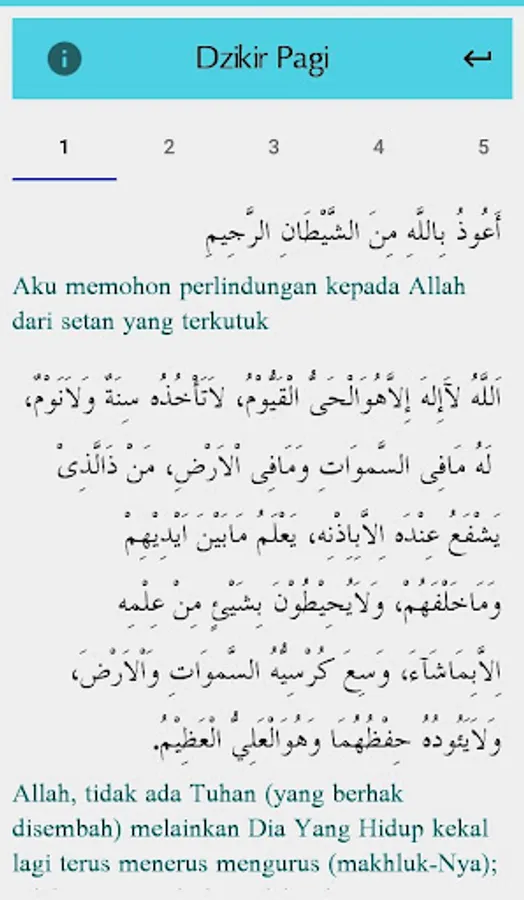 Dzikir Pagi
1 2 3 4 5
أَعُوذُ بِاللَّهِ مِنَ الشَّيْطَانِ الرَّجِيمِ
Aku memohon perlindungan kepada Allah
dari setan yang terkutuk
اَللَّهُ لآَإِلهَ إِلاَّهُوَالْحَىُّ الْقَيُّوْمُ، لاَتَأْخُذُه سِنَةٌ وَلاَنَوْمٌ،
لَهُ مَافِى السَّموَاتِ وَمَافِى اْلاَرْضِ، مَنْ ذَالَّذِىْ
يَشْفَعُ عِنْدَه اِلاَّبِاِذْنِه، يَعْلَمُ مَابَيْنَ اَيْدِيْهِمْ
وَمَاخَلْفَهُمْ، وَلاَيُحِيْطُوْنَ بِشَيْئٍ مِنْ عِلْمِه
اِلاَّبِمَاشَآءَ، وَسِعَ كُرْسِيُّهُ السَّموَاتِ وَاْلاَرْضَ،
وَلاَيَئُودُهُ حِفْظُهُمَا وَهُوَالْعَلِيُّ الْعَظِيْمُ.
Allah, tidak ada Tuhan (yang berhak
disembah) melainkan Dia Yang Hidup kekal
lagi terus menerus mengurus (makhluk-Nya);